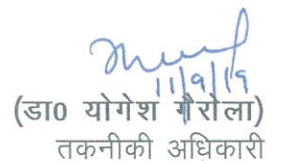 11/9/19
(डा0 योगेश गैरोला)
तकनीकी अधिकारी